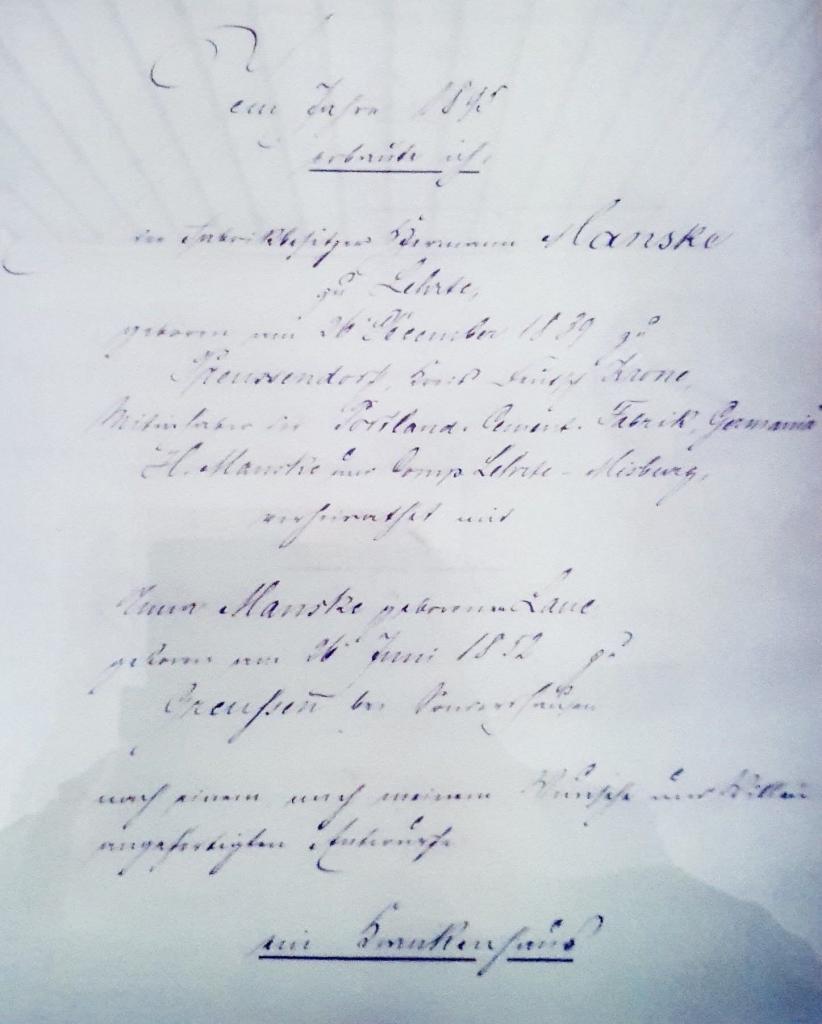 Im Jahre 1895
erbaute ich,
der Fabrikbesitzer Hermann Manske
zu Lehrte,
geboren am 26 December 1839 zu
Preussendorf, Kreis Deutsch Krone,
Mitinhaber der Portland-Cement-Fabrik, Germania
H. Manske und Comp Lehrte-Misburg,
verheirathet mit
Anna Manske geborenen Laue
geboren am 26 Juni 1852 zu
Greußen bei Sondershausen
nach einem nach meinem Wunsche und Willen
angefertigten Entwurfe
ein Krankenhaus